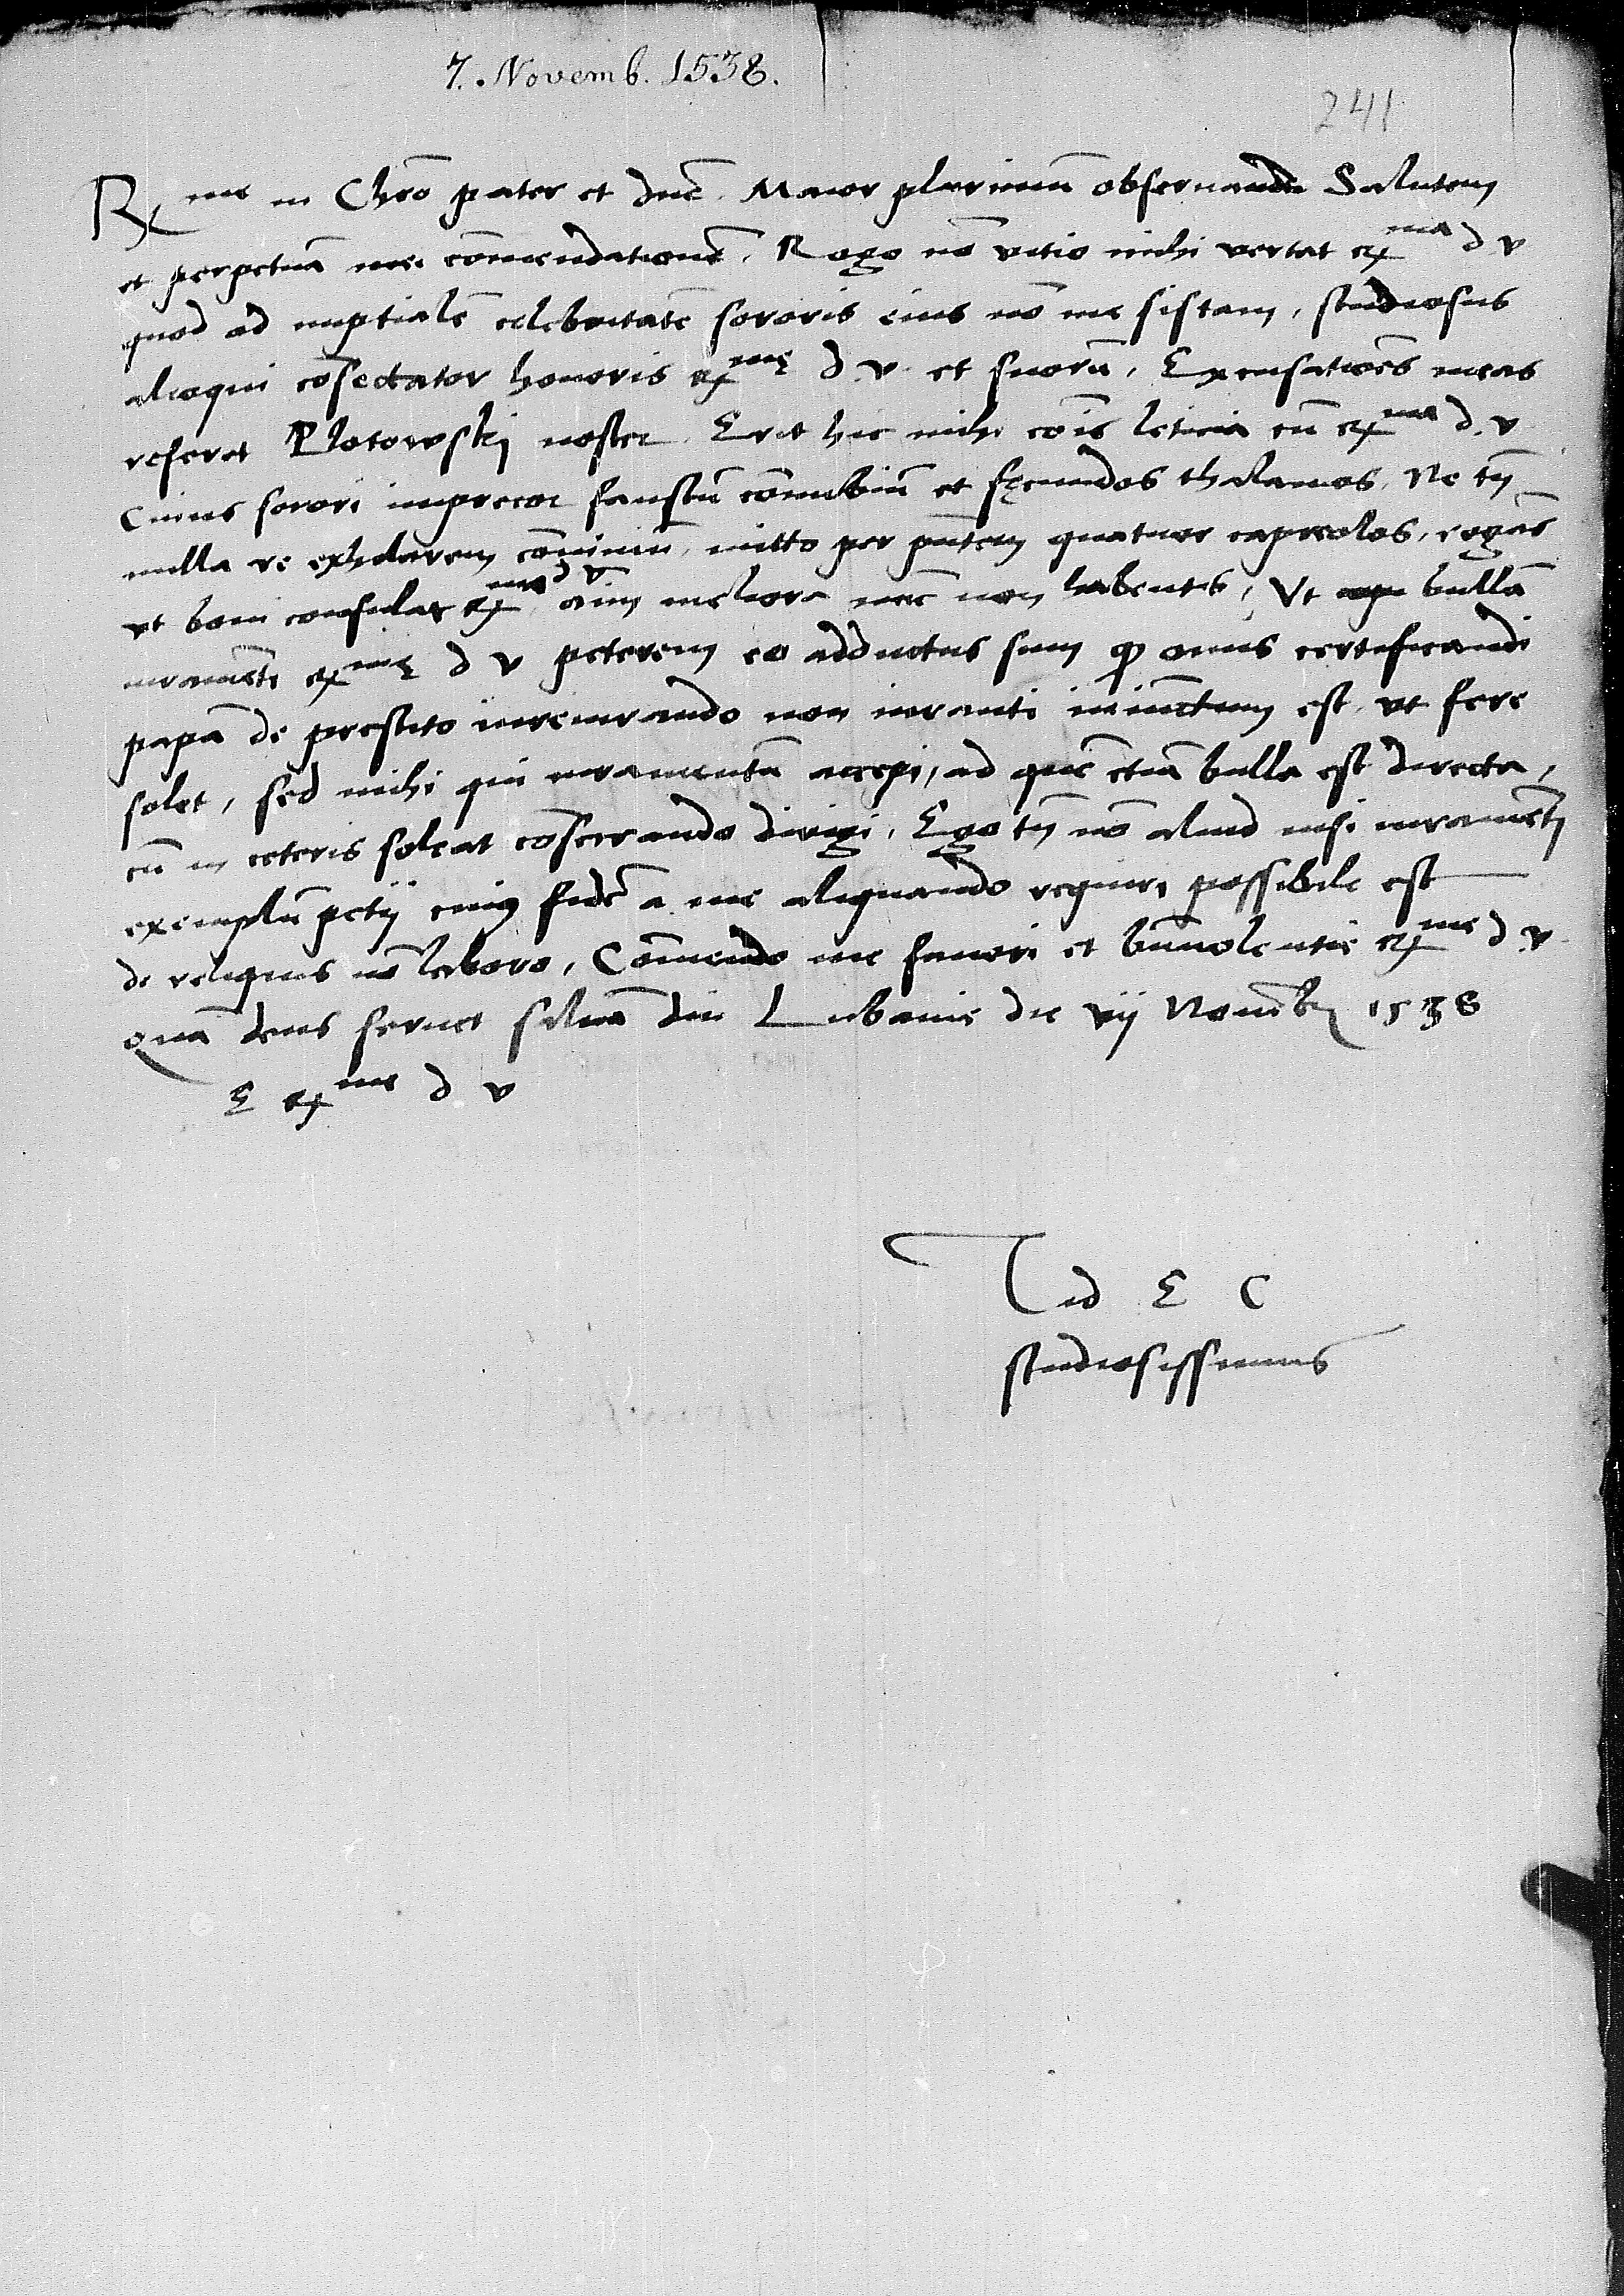 7. Novemb. 1538.
241
R me in Chr̄o pater et dn̄e. Maior plurimu̅ obseruande Salutem
et perpetua̅ mei co̅mendatione̅. Rogo no̅ vitio mihi vertat Rma d v
quod ad nuptiale̅ celebritate̅ sororis eius no̅ me sistam, studiosus
alioqui co̅sectator honoris Rme d. v. et suoru̅, Excusatio̅es meas
referet Plotowskj noster. Erit hic mihi co̅is leticia cu̅ Rma d. v
Cuius sorori imprecor faustu̅ co̅nubiu̅ et fęcundos thalamos, Ne tn̅
nulla re exhilarem co̅uiuiu̅, mitto per pn̅tem quatuor capreolos, roga̅s
vt boni consulat Rma d v a̅im meliora nec non habentis, Vt bulla̅
iurame̅ti Rme d v peterem eo adductus sum ꝙ onus certificandi
papa̅ de prestito iureiurando non iuranti iniunctum est, vt fere
solet, sed mihi qui iuramentu̅ accepi, ad que̅ etia̅ bulla est directa,
cu̅ in ceteris soleat co̅secrando dirigi, Ego tn̅ no̅ aliud nisi iurame̅ti
exemplu̅ petij cuius fide̅ a me aliquando requiri possibile est
de reliquis no̅ laboro, Co̅mendo me fauori et beniuolentie Rme d v.
Qua̅ deus seruet salua̅ diu Lubauie die vij Noue̅b 1538
E Rme d v
Tid E C
studiosissimus